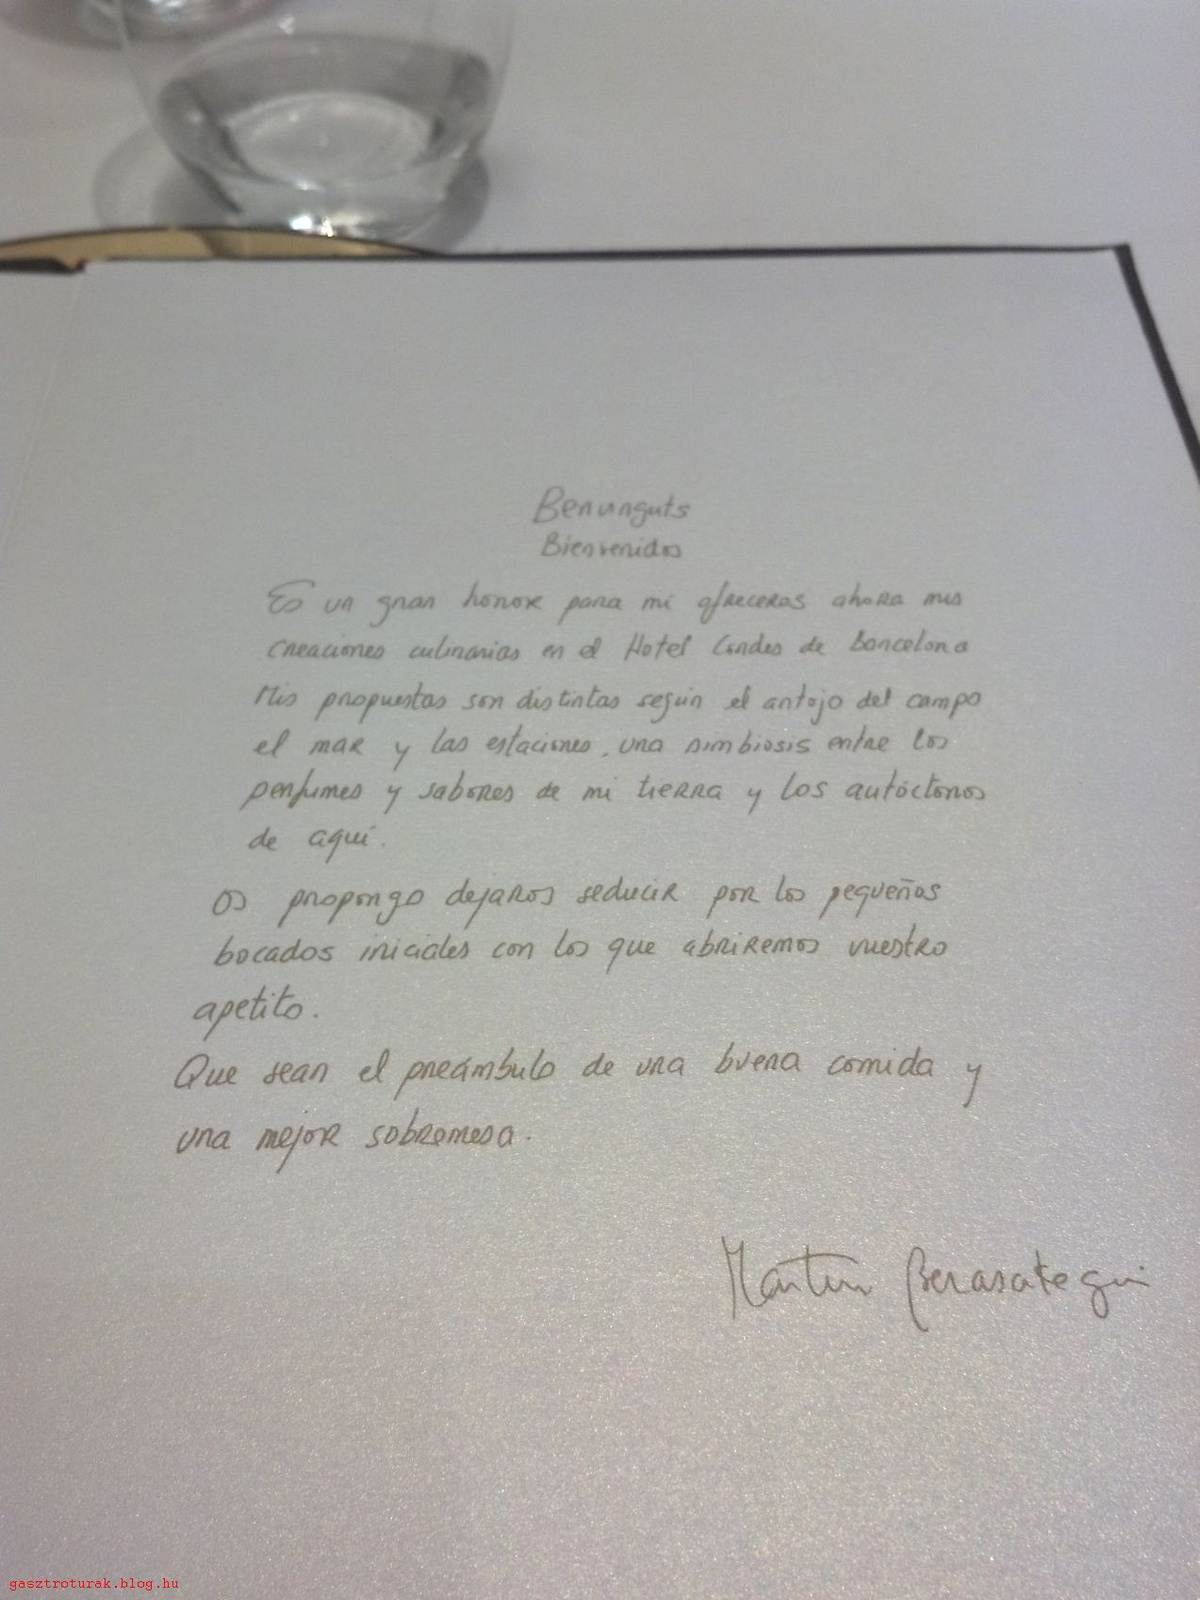 Benvinguts
Bienvenidos
Es un gran honor para mi ofreceros ahora mis
creaciones culinarias en el Hotel Condes de Barcelona
Mis propuestas son distintas según el antojo del campo
el mar y las estaciones, una simbiosis entre los
perfumes y sabores de mi tierra y los autóctonos
de aquí.
Os propongo dejaros seducir por los pequeños
bocados iniciales con los que abriremos vuestro
apetito.
Que sean el preámbulo de una buena comida y
una mejor sobremesa.
Martin Berasategui
gasztroturak.blog.hu